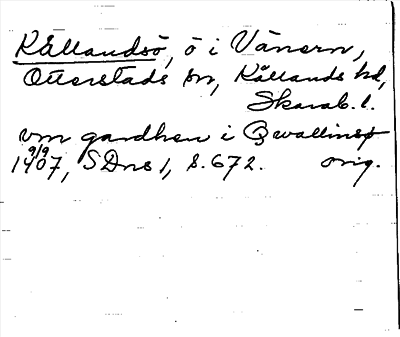 Kållandsö, ö i Vänern,
Otterstads sn, Kållands hd,
Skarab. l.
vm gardhen i Qwallinsø
9/9
1407, SDns 1, s. 672. orig.